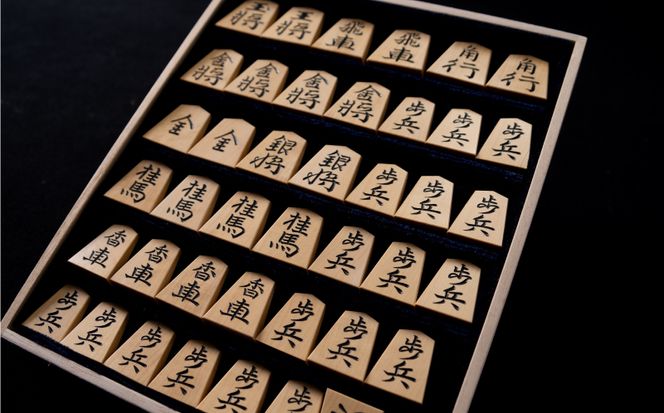 玉将 王将 飛車 飛車 角行 角行
金将 金将 金将 金将 歩兵 歩兵 歩兵
全 全 銀将 銀将 歩兵 歩兵 歩兵
桂馬 桂馬 桂馬 桂馬 歩兵 歩兵 歩兵
香車 香車 香車 香車 歩兵 歩兵 歩兵
歩兵 歩兵 歩兵 歩兵 歩兵 歩兵